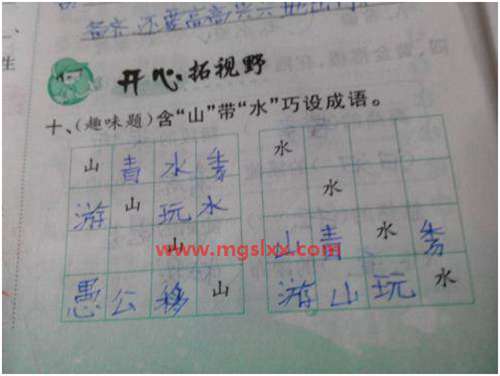 开心拓视野
十、(趣味题)含“山”带“水”巧设成语。
山青水秀 水
游山玩水 水
山 山青水秀
愚公移山 游山玩水
www.mgslxx.com